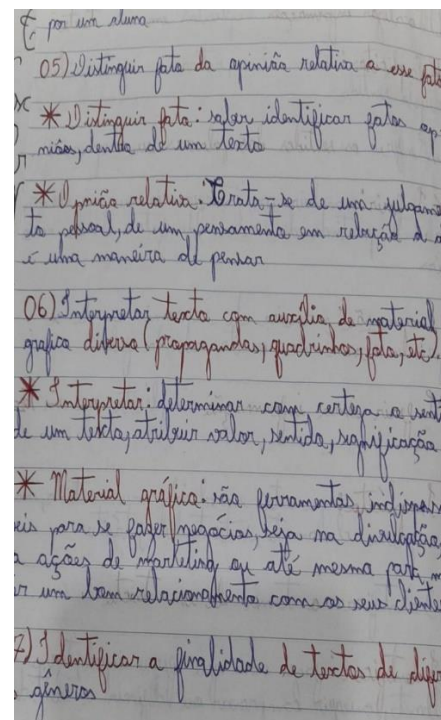 por um aluna
05) Distinguir fato da opinião relativa a esse fato
* Distinguir fato: saber identificar fatos op
niões, dentro de um texto
* Opnião relativa: Trata-se de um julgame
to pessoal, de um pensamento em relação a
é uma maneira de pensar
06) Interpretar texto com auxílio de material
gráfico diverso (propagandas, quadrinhos, foto, etc).
* Interpretar: determinar com certeza o sent
de um texto, atribuir valor, sentido, significação
* Material gráfico: são ferramentas indispens
eis para se fazer negócios, seja na divulgação
a ações de marketing ou até mesmo para m
r um bom relacionamento com os seus cliente
7) Identificar a finalidade de textos de difer
gêneros